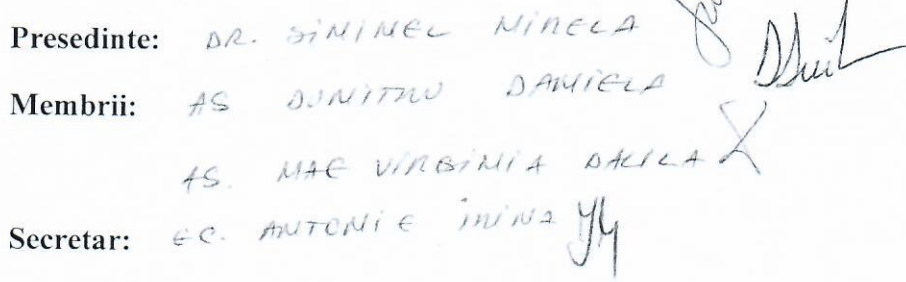 Presedinte: DR. SIMINEL MIRELA
Membrii: AS DUMITRU DANIELA
AS. MAE VIRGINIA DALILA
Secretar: EC. ANTONIE IRINA